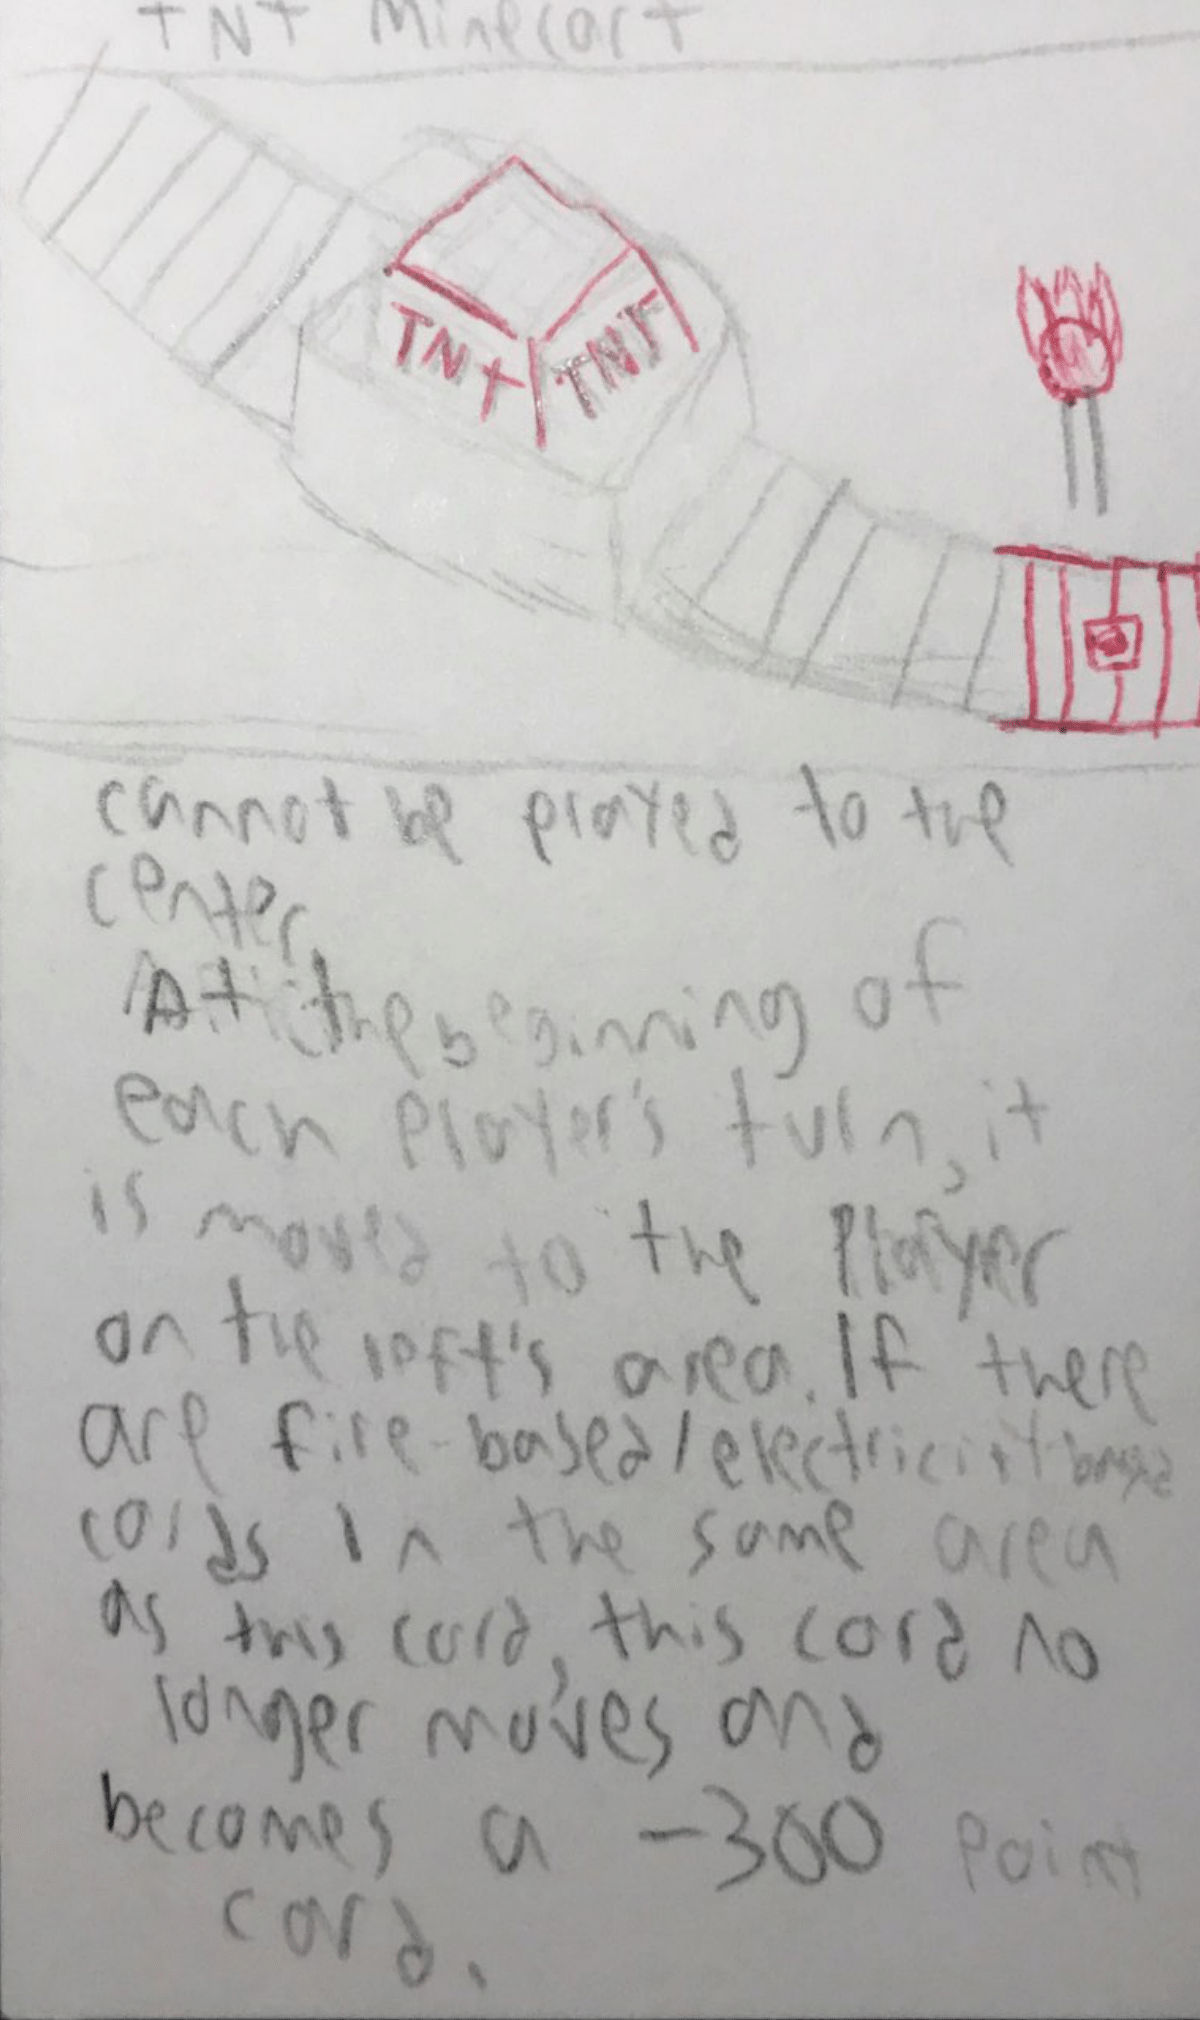 TNT Minecart
TNT TNT
cannot be played to the
center.
At the beginning of
each player's turn, it
is moved to the Player
on the left's area. If there
are fire-based/electricity based
cards in the same area
as this card, this card no
longer moves and
becomes a -300 Point
card.